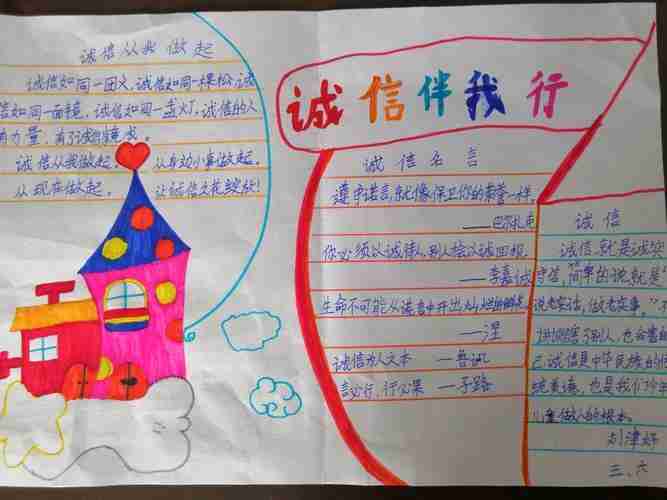 诚信从我做起
诚信如同一团火,诚信如同一棵松,诚
信如同一面镜,诚信如同一盏灯,诚信的人
有力量,有了诚信
诚信从我做起,从身边小事做起,
从现在做起,让诚信之花绽放!
诚信伴我行
诚信名言
遵守诺言,就像保卫你的荣誉一样。
——巴尔扎克
你必须以诚待人,别人会以诚回报。
——李嘉诚
生命不可能从谎言中开出灿烂的鲜花
——涅
诚信为人之本 ——鲁迅
言必行,行必果 ——子路
诚信
诚信,就是诚实
守信,简单的说就是
说老实话,做老实事。
了别人,也会害
己诚信是中华民族的
统美德,也是我们
儿童做人的根本。
刘津好
三、六